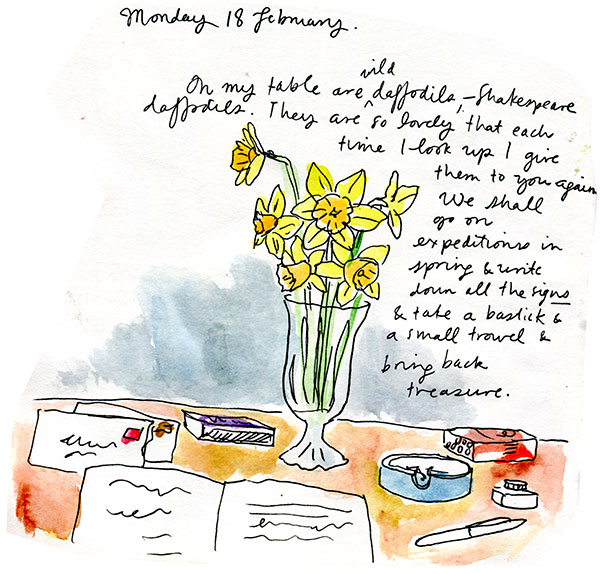 Monday 18 February.
wild
On my table are ^ daffodils, – Shakespeare
daffodils. They are so lovely that each
time I look up I give
them to you again
We shall
go on
expeditions in
spring & write
down all the signs
& take a bastick &
a small trowel &
bring back
treasure.